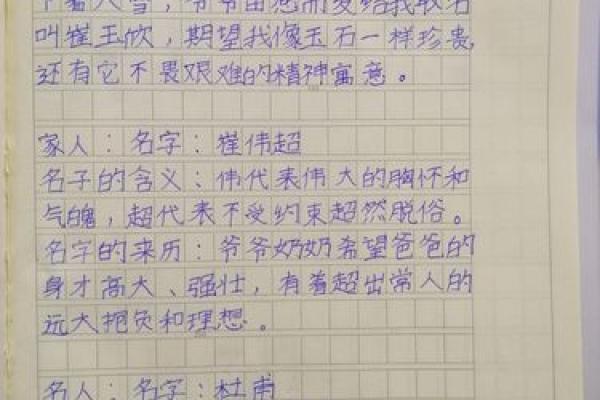 下着大雪，爷爷由感而发给我取名
叫崔玉欣，期望我像玉石一样珍贵，
还有它不畏艰难的精神寓意。
家人：名字：崔伟超
名子的含义：伟代表伟大的胸怀和
气魄，超代表不受约束超然脱俗。
名字的来历：爷爷奶奶希望爸爸的
身才高大、强壮，有着超出常人的
远大抱负和理想。
名人：名字：杜甫